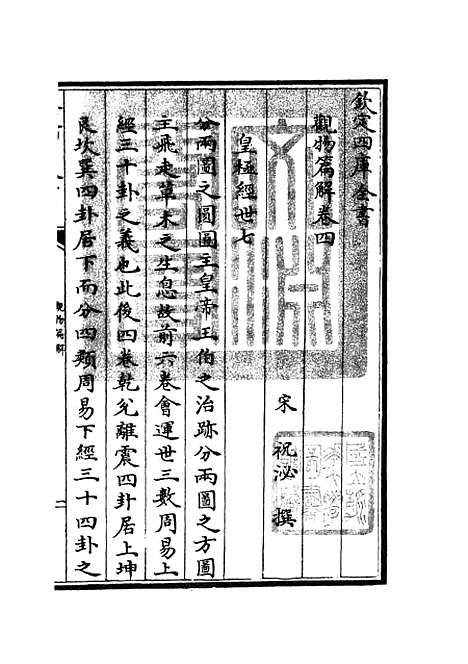 欽定四庫全書
觀物篇解卷四
宋 祝泌 撰
皇極經世七
分兩圖之圓圖主皇帝王伯之治跡分兩圖之方圖
主飛走草木之生息故前六卷會運世三數周易上
經三十卦之義也此後四卷乾兊離震四卦居上坤
艮坎巽四卦居下而分四類周易下經三十四卦之
觀物篇解